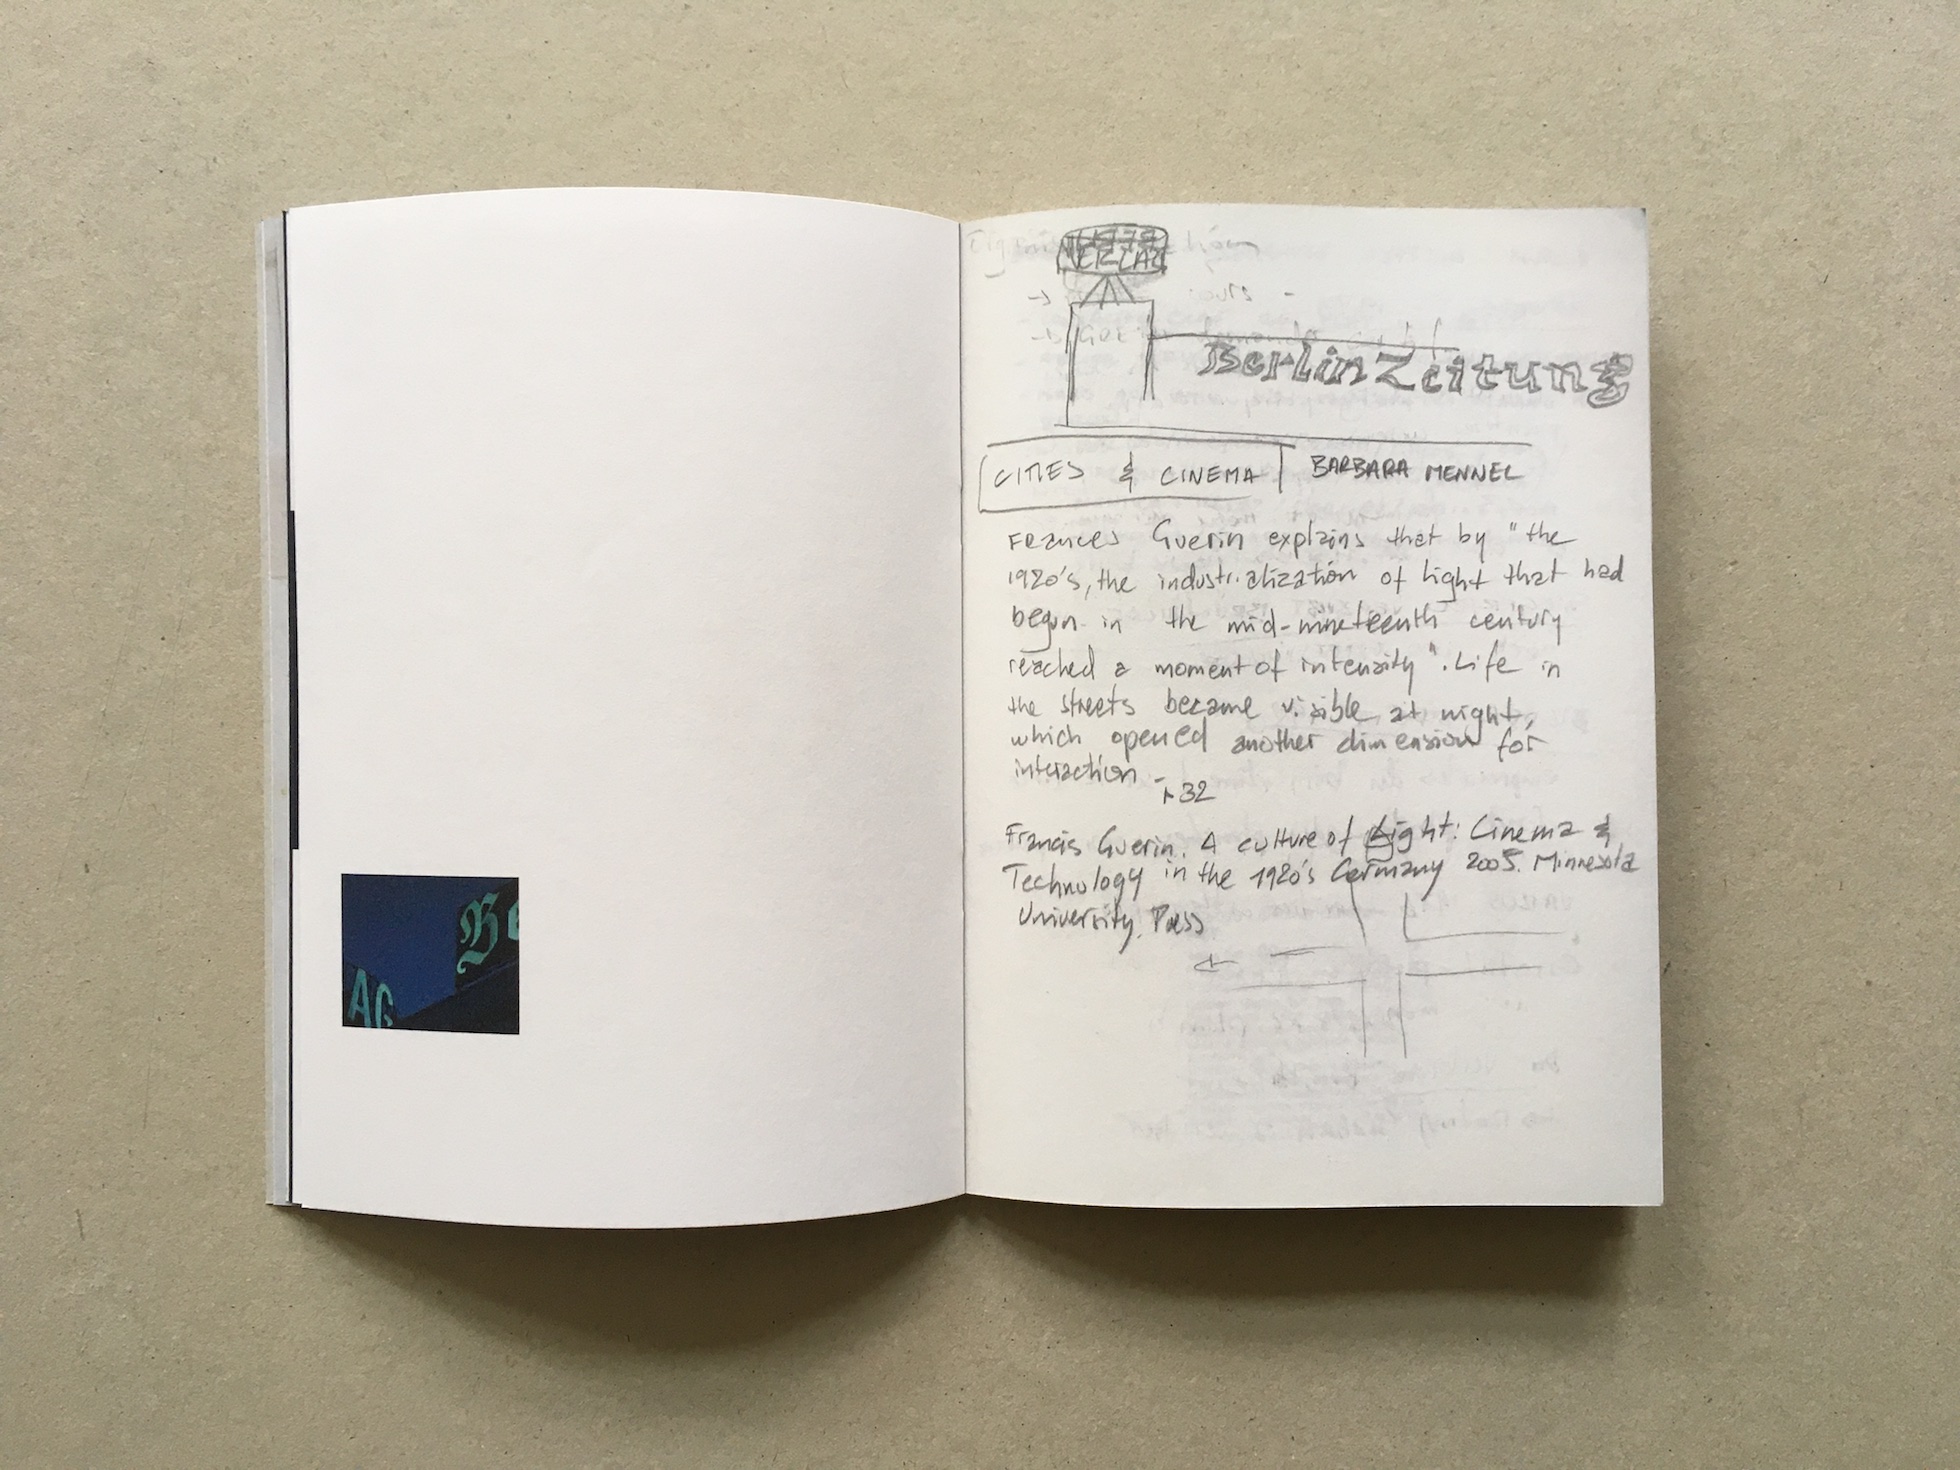 AG
Be
VERLAG
Berlin Zeitung
CITIES & CINEMA BARBARA MENNEL
Frances Guerin explains that by "the
1920's, the industrialization of light that had
begun in the mid-nineteenth century
reached a moment of intensity". Life in
the streets became visible at night,
which opened another dimension for
interaction -
p 32
Francis Guerin. A culture of Light: Cinema &
Technology in the 1920's Germany 2005. Minnesota
University. Press